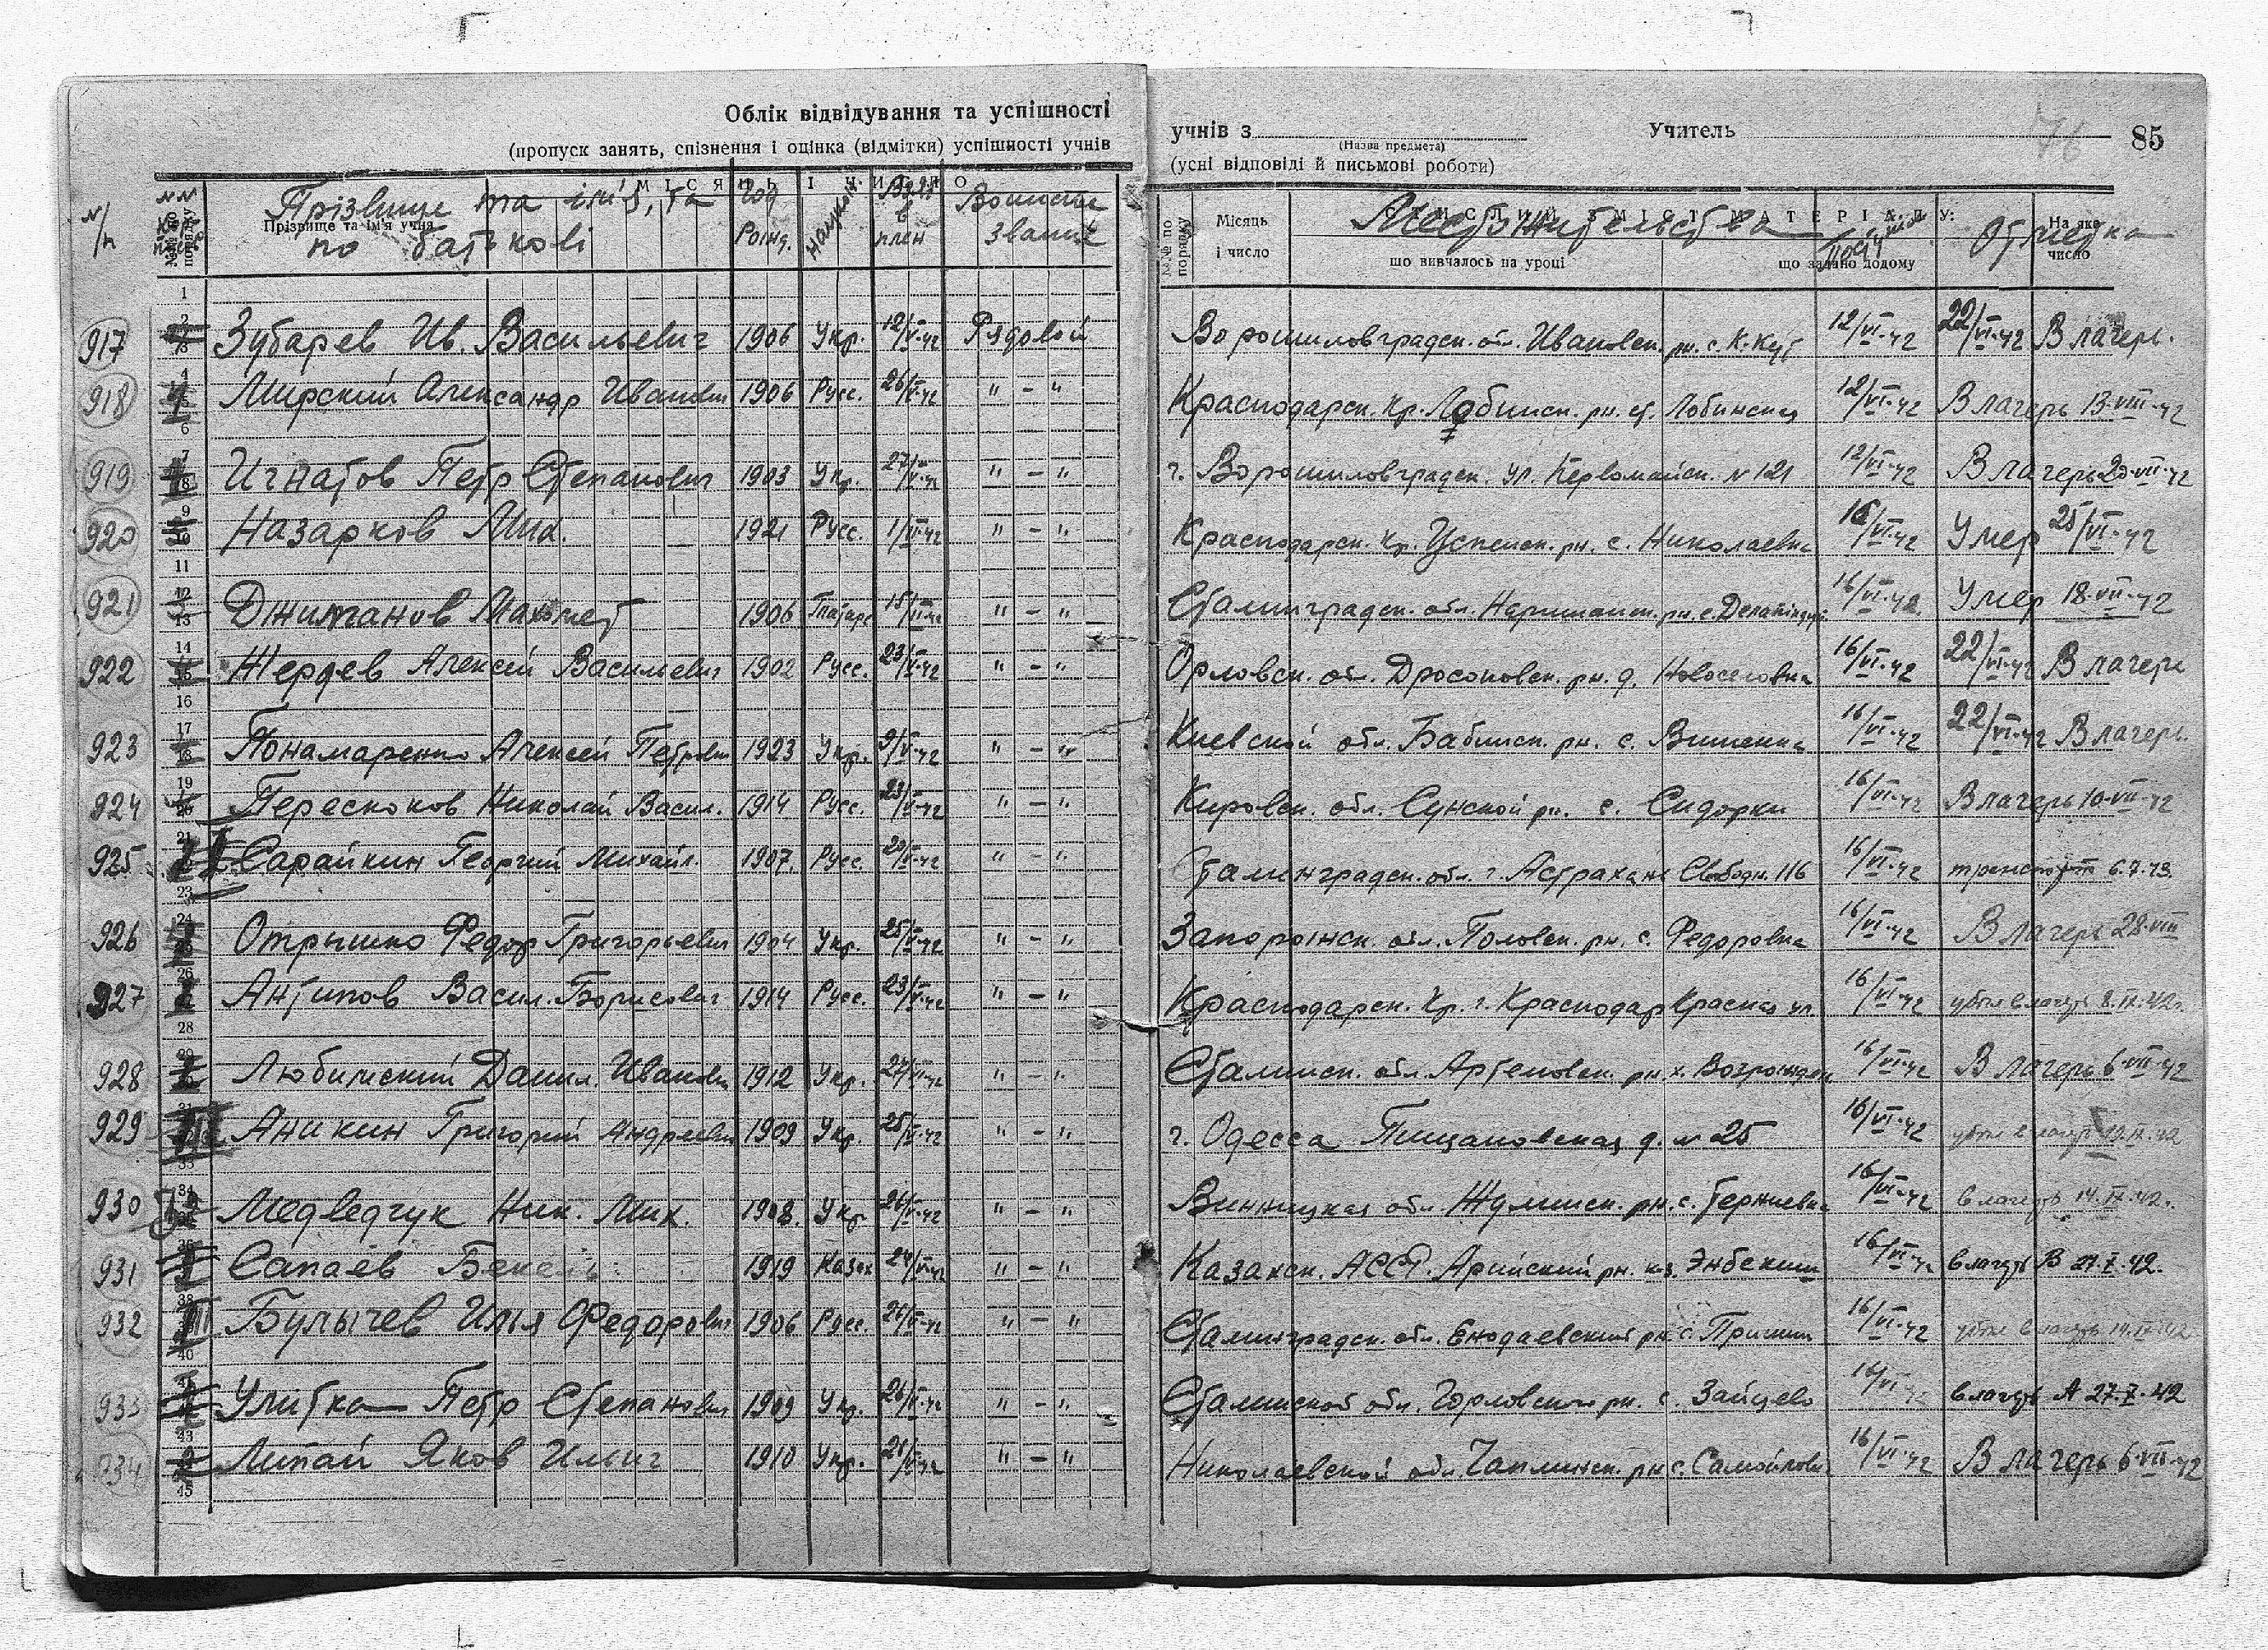 Облік відвідування та успішності
(пропуск занять, спізнення і оцінка (відмітки) успішності учнів
учнів з Учитель 76 85
(Назва предмета)
(усні відповіді й письмові роботи)
N/п Прізвище та імʼя, та по батькові Год рожд. Время в плен Воинске звание
Прізвище та ім'я учня
№№ по порядку Місяць і число Местожительства Отметка
що вивчалось на уроці що задано додому На яке число
917 Зубарев Ив. Васильевич 1906 Укр. 12/V-42 Рядовой Ворошиловградск. обл. Ивановск. рн. с. К-Кут 12/VI-42 22/VI-42 В лагерь.
918 Мирский Александр Иванович 1906 Русс. 26/V-42 " - " Краснодарск. кр. Лабинск. рн. ст. Лобинская 12/VI-42 В лагерь 13-VIII-42
919 Игнатов Петр Степанович 1903 Укр. 27/V-42 " - " г. Ворошиловградск. ул. Первомайск. N 121 12/VI-42 В лагерь 20-VII-42
920 Назарков Мих. 1921 Русс. 1/VI-42 " - " Краснодарск. кр. Успенск. рн. с. Николаевка 16/VI-42 Умер 25/VI-42
921 Джиманов 1906 Татар " - " Сталинградск. обл. рн. с. 16/VI-42 Умер 18-VII-42
922 Жердев Алексей Васильевич 1902 Русс. 23/V-42 " - " Орловск. обл. Дросковск. рн. д. Новоселовка 16/VI-42 22/VI-42 В лагерь
923 Понамаренко Алексей Петрович 1923 Укр. 9/V-42 " - " Киевской обл. Бабинск. рн. с. Вишенка 16/VI-42 22/VI-42 В лагерь.
924 Перескоков Николай Васил. 1914 Русс. 23/V-42 " - " Кировск. обл. Сунской рн. с. Сидорки 16/VI-42 В лагерь 10-VII-42
925 Сарайкин Георгий Михайл. 1907. Русс. " - " Сталинградск. обл. г. Астрахань Свободн. 116 16/VI-42 транспорт 6.7.43.
926 Отрышко Федор Григорьевич 1904 Укр. 25/V-42 " - " Запорожск. обл. Половск. рн. с. Федоровка 16/VI-42 В лагерь 28-VIII
927 Антипов Васил. Борисович 1914 Русс. 23/V-42 " - " Краснодарск. кр. г. Краснодар Красная ул. 16/VI-42 убыл в лагерь 8.IX.42г.
928 Любимский Данил. Иванович 1912 Укр. " - " Сталинск. обл. Артемовск. рн. х. Возрожден 16/VI-42 В лагерь 6-VII-42
929 Аникин Григорий Андреевич 1909 Укр. 25/V-42 " - " г. Одесса Пишановская д. N 25 16/VI-42 убыл в лагерь
930 Медведчук Ник. Мих. 1908. Укр. " - " Винницкая обл. рн. с. 16/VI-42 в лагерь 14.IX.42.
931 Сапаев 1919 Казах " - " Казахск. АССР. Арийский рн. к-з. Энбекши 16/VI-42 в лагерь В 27.X.42.
932 Булычев Илья Федорович 1906 Русс. 26/V-42 " - " Сталинградск. обл. Енодаевский рн. с. Пришиб 16/VI-42 убыл в лагерь 14.IX.42
933 Улитка Петр Степанович 1909 Укр. 26/V-42 " - " Сталинской обл. Горловского рн. с. Зайцево 16/VI-42 в лагерь А 27.X.42
934 Липай Яков Ильич 1910 Укр. " - " Николаевской обл. Чаплинск. рн. с. 16/VI-42 В лагерь 6-VII-42